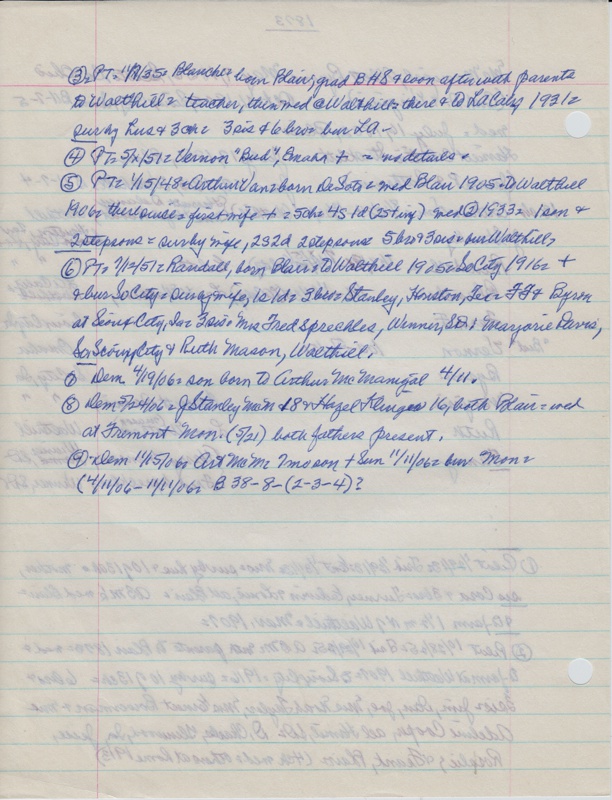 ③ PT= 11/7/35= Blanche= born Blair, grad BHS & soon after with parents
to Walthill= teacher, then med @ Walthill= there & to LaCity 1931=
surv by hus & 3ch= 3sis & 6bro= bur LA-
④ PT= 5/ /51= Vernon "Bud", Omaha + = no details.
⑤ PT= 1/15/48= Arthur Van= born DeSoto & med Blair 1905= to Walthill
1906= there since= first wife + = 5ch= 4s 1d (25 Fing) med② 1933= 1son &
2stepsons= surv by wife, 2s2d 2stepsons 5bro & 3sis= bur Walthill,
⑥ PT= 7/12/51= Randall, born Blair= to Walthill 1905= SoCity 1916= +
& bur SoCity= surv by wife, 1s 1d= 3bro= Stanley, Houston, Tex= FJ & Byron
at Sioux City, Ia= 3sis= Mrs Fred Spreckles, Winner, SD; Marjorie Davis,
So Sioux City & Ruth Mason, Walthill.
⑦ Dem 4/19/06= son born to Arthur McManigal 4/11.
⑧ Dem 5/24/06= J Stanley McM 18 & Hazel 16, both Blair= wed
at Fremont Mon. (5/21) both fathers present.
⑨ Dem 11/15/06= Art McM 7moson + Sun 11/11/06= bur Mon=
(4/11/06-11/11/06= B 38-8-(2-3-4)?